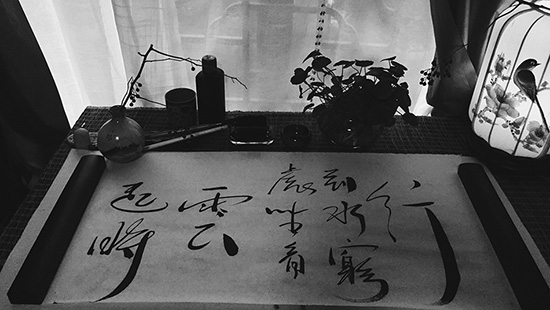 行
到水窮
處坐看
雲
起時